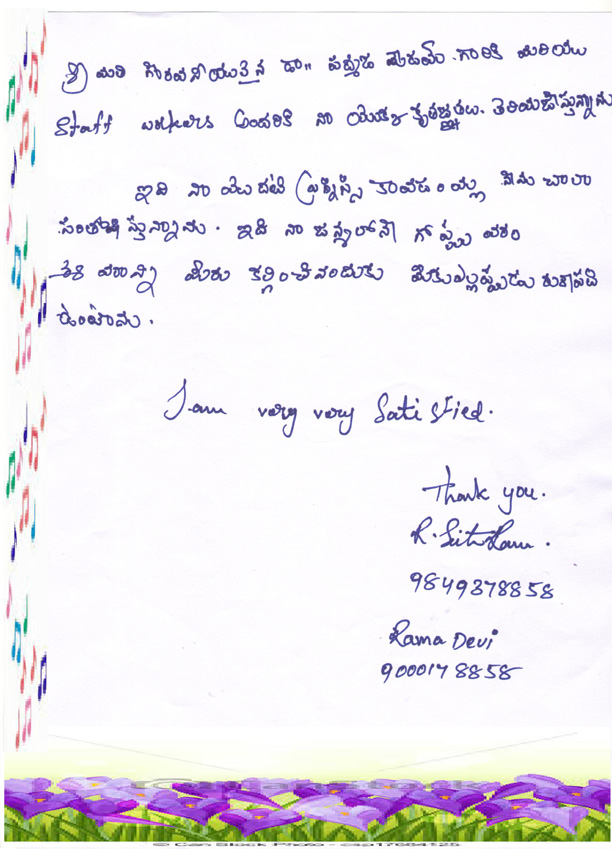 శ్రీ మతి గౌరవనీయులైన డా॥ పద్మజ మేడమ్. గారికి మరియు
Staff workers అందరికి నా యొక్క కృతజ్ఞతలు. తెలియజేస్తున్నాను
ఇది నా మొదటి ప్రెగ్నెన్సి కావడం వల్ల నేను చాలా
సంతోషిస్తున్నాను. ఇది నా జన్మలోనే గొప్ప వరం
ఈ వరాన్ని మీరు కల్గించినందుకు మీకు ఎల్లప్పుడు రుణపడి
ఉంటాను.
I am very very Satisfied.
Thank you.
R. SitaRam.
9849378858
Rama Devi
9000178858
© Can Stock Photo - csp17684125